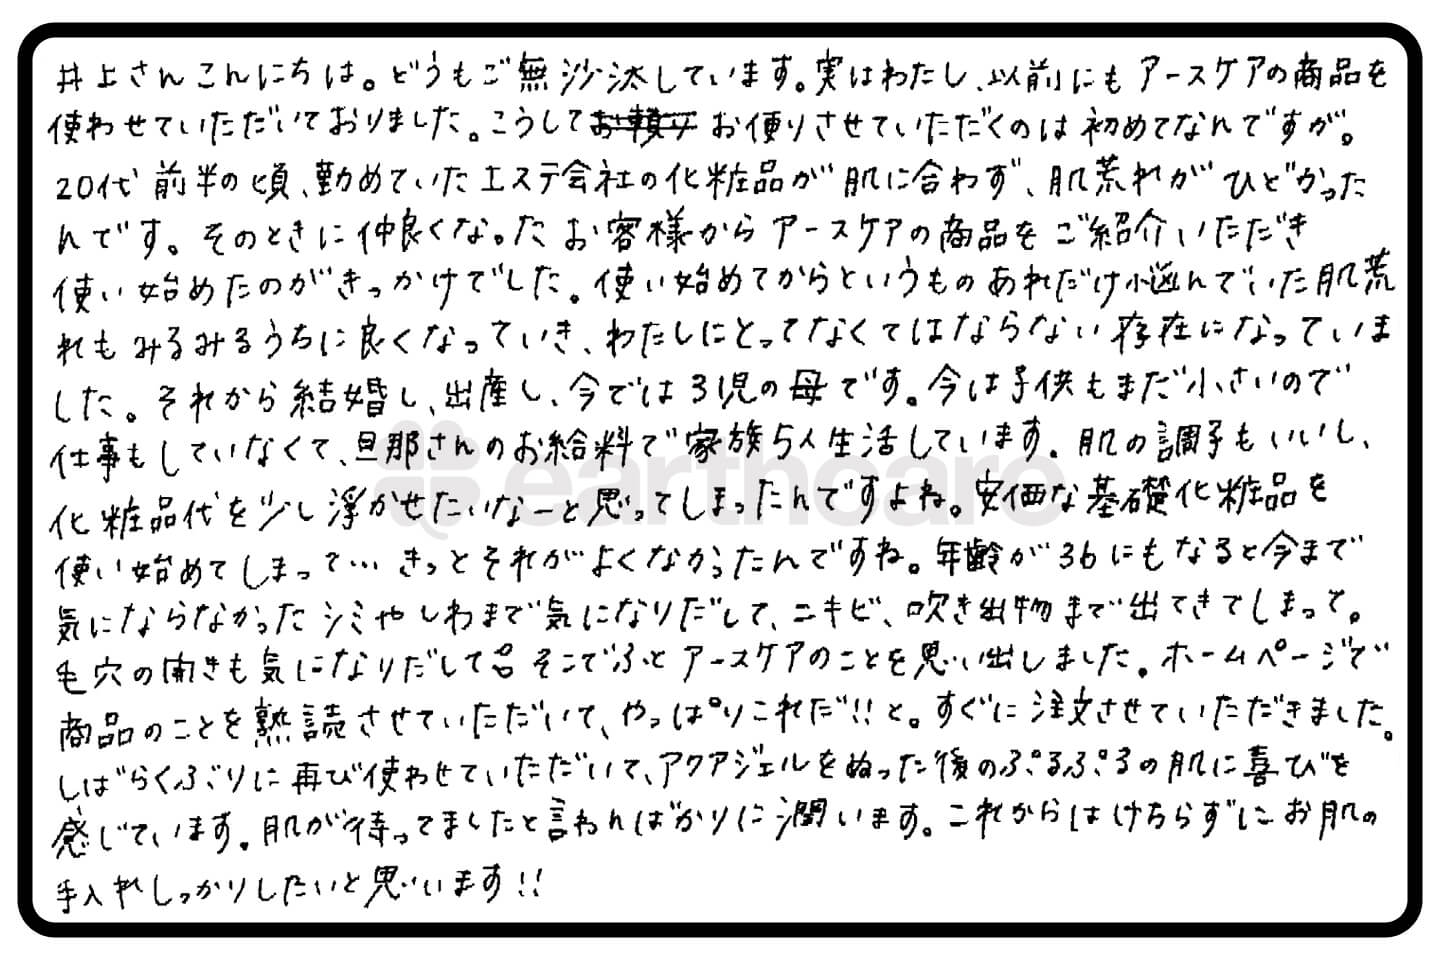 井上さんこんにちは。どうもご無沙汰しています。実はわたし、以前にもアースケアの商品を
使わせていただいておりました。こうして お便りさせていただくのは初めてなんですが。
20代前半の頃、勤めていたエステ会社の化粧品が肌に合わず、肌荒れがひどかった
んです。そのときに仲良くなったお客様からアースケアの商品をご紹介いただき
使い始めたのがきっかけでした。使い始めてからというものあれだけ悩んでいた肌荒
れもみるみるうちに良くなっていき、わたしにとってなくてはならない存在になっていま
した。それから結婚し、出産し、今では3児の母です。今は子供もまだ小さいので
仕事もしていなくて、旦那さんのお給料で家族5人生活しています。肌の調子もいいし、
化粧品代を少し浮かせたいなーと思ってしまったんですよね。安価な基礎化粧品を
使い始めてしまって…きっとそれがよくなかったんですね。年齢が36にもなると今まで
気にならなかったシミやしわまで気になりだして、ニキビ、吹き出物まで出てきてしまって。
毛穴の開きも気になりだして。。そこでふとアースケアのことを思い出しました。ホームページで
商品のことを熟読させていただいて、やっぱりこれだ!!と。すぐに注文させていただきました。
しばらくぶりに再び使わせていただいて、アクアジェルをぬった後のぷるぷるの肌に喜びを
感じています。肌が待ってましたと言わんばかりに潤います。これからはけちらずにお肌の
手入れしっかりしたいと思います!!
earthcare